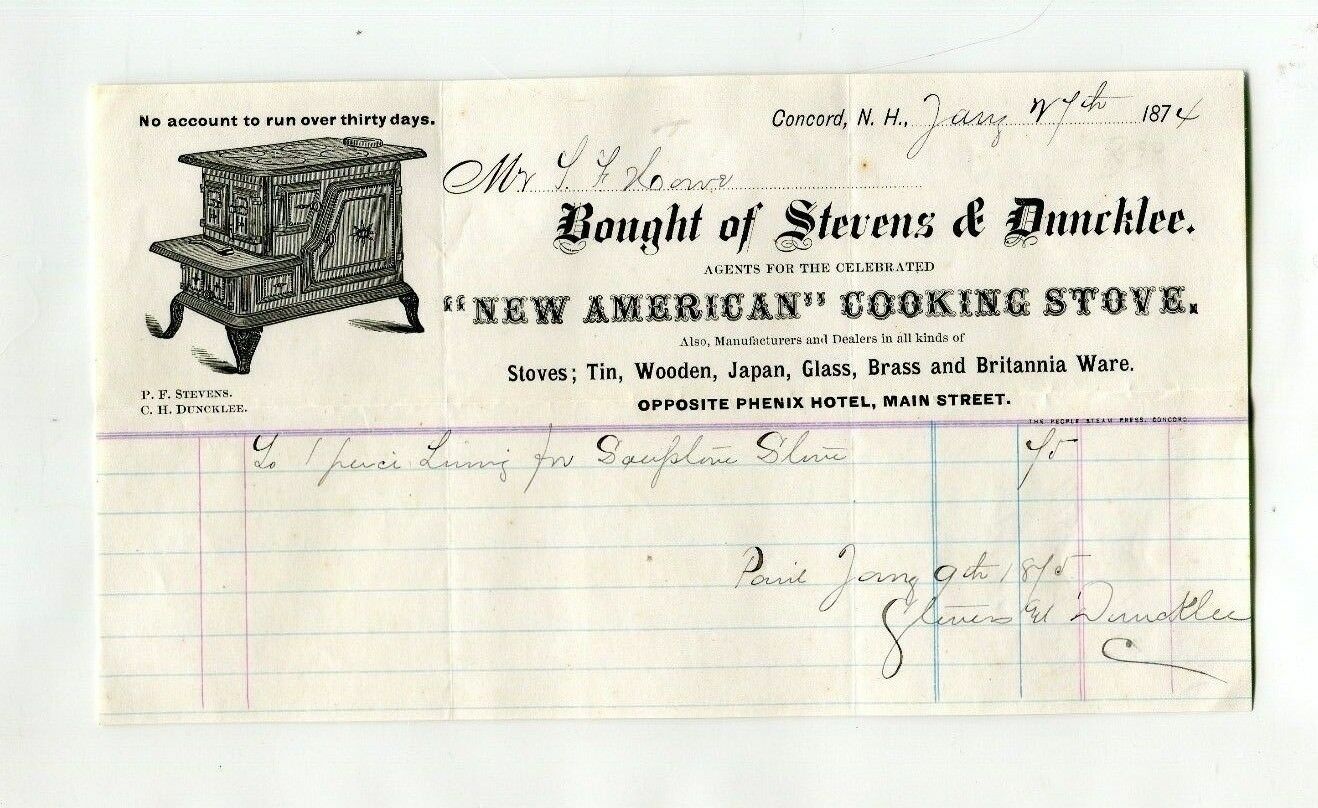 No account to run over thirty days.
Concord, N. H., Jany 27th 1874
Mr S F Howe
Bought of Stevens & Duncklee.
AGENTS FOR THE CELEBRATED
"NEW AMERICAN" COOKING STOVE.
Also, Manufacturers and Dealers in all kinds of
Stoves; Tin, Wooden, Japan, Glass, Brass and Britannia Ware.
P. F. STEVENS.
C. H. DUNCKLEE.
OPPOSITE PHENIX HOTEL, MAIN STREET.
THE PEOPLE STEAM PRESS, CONCORD.
To 1 peice Lining for Soapstone Stove 75
Paid Jany 9th 1875
Stevens & Duncklee